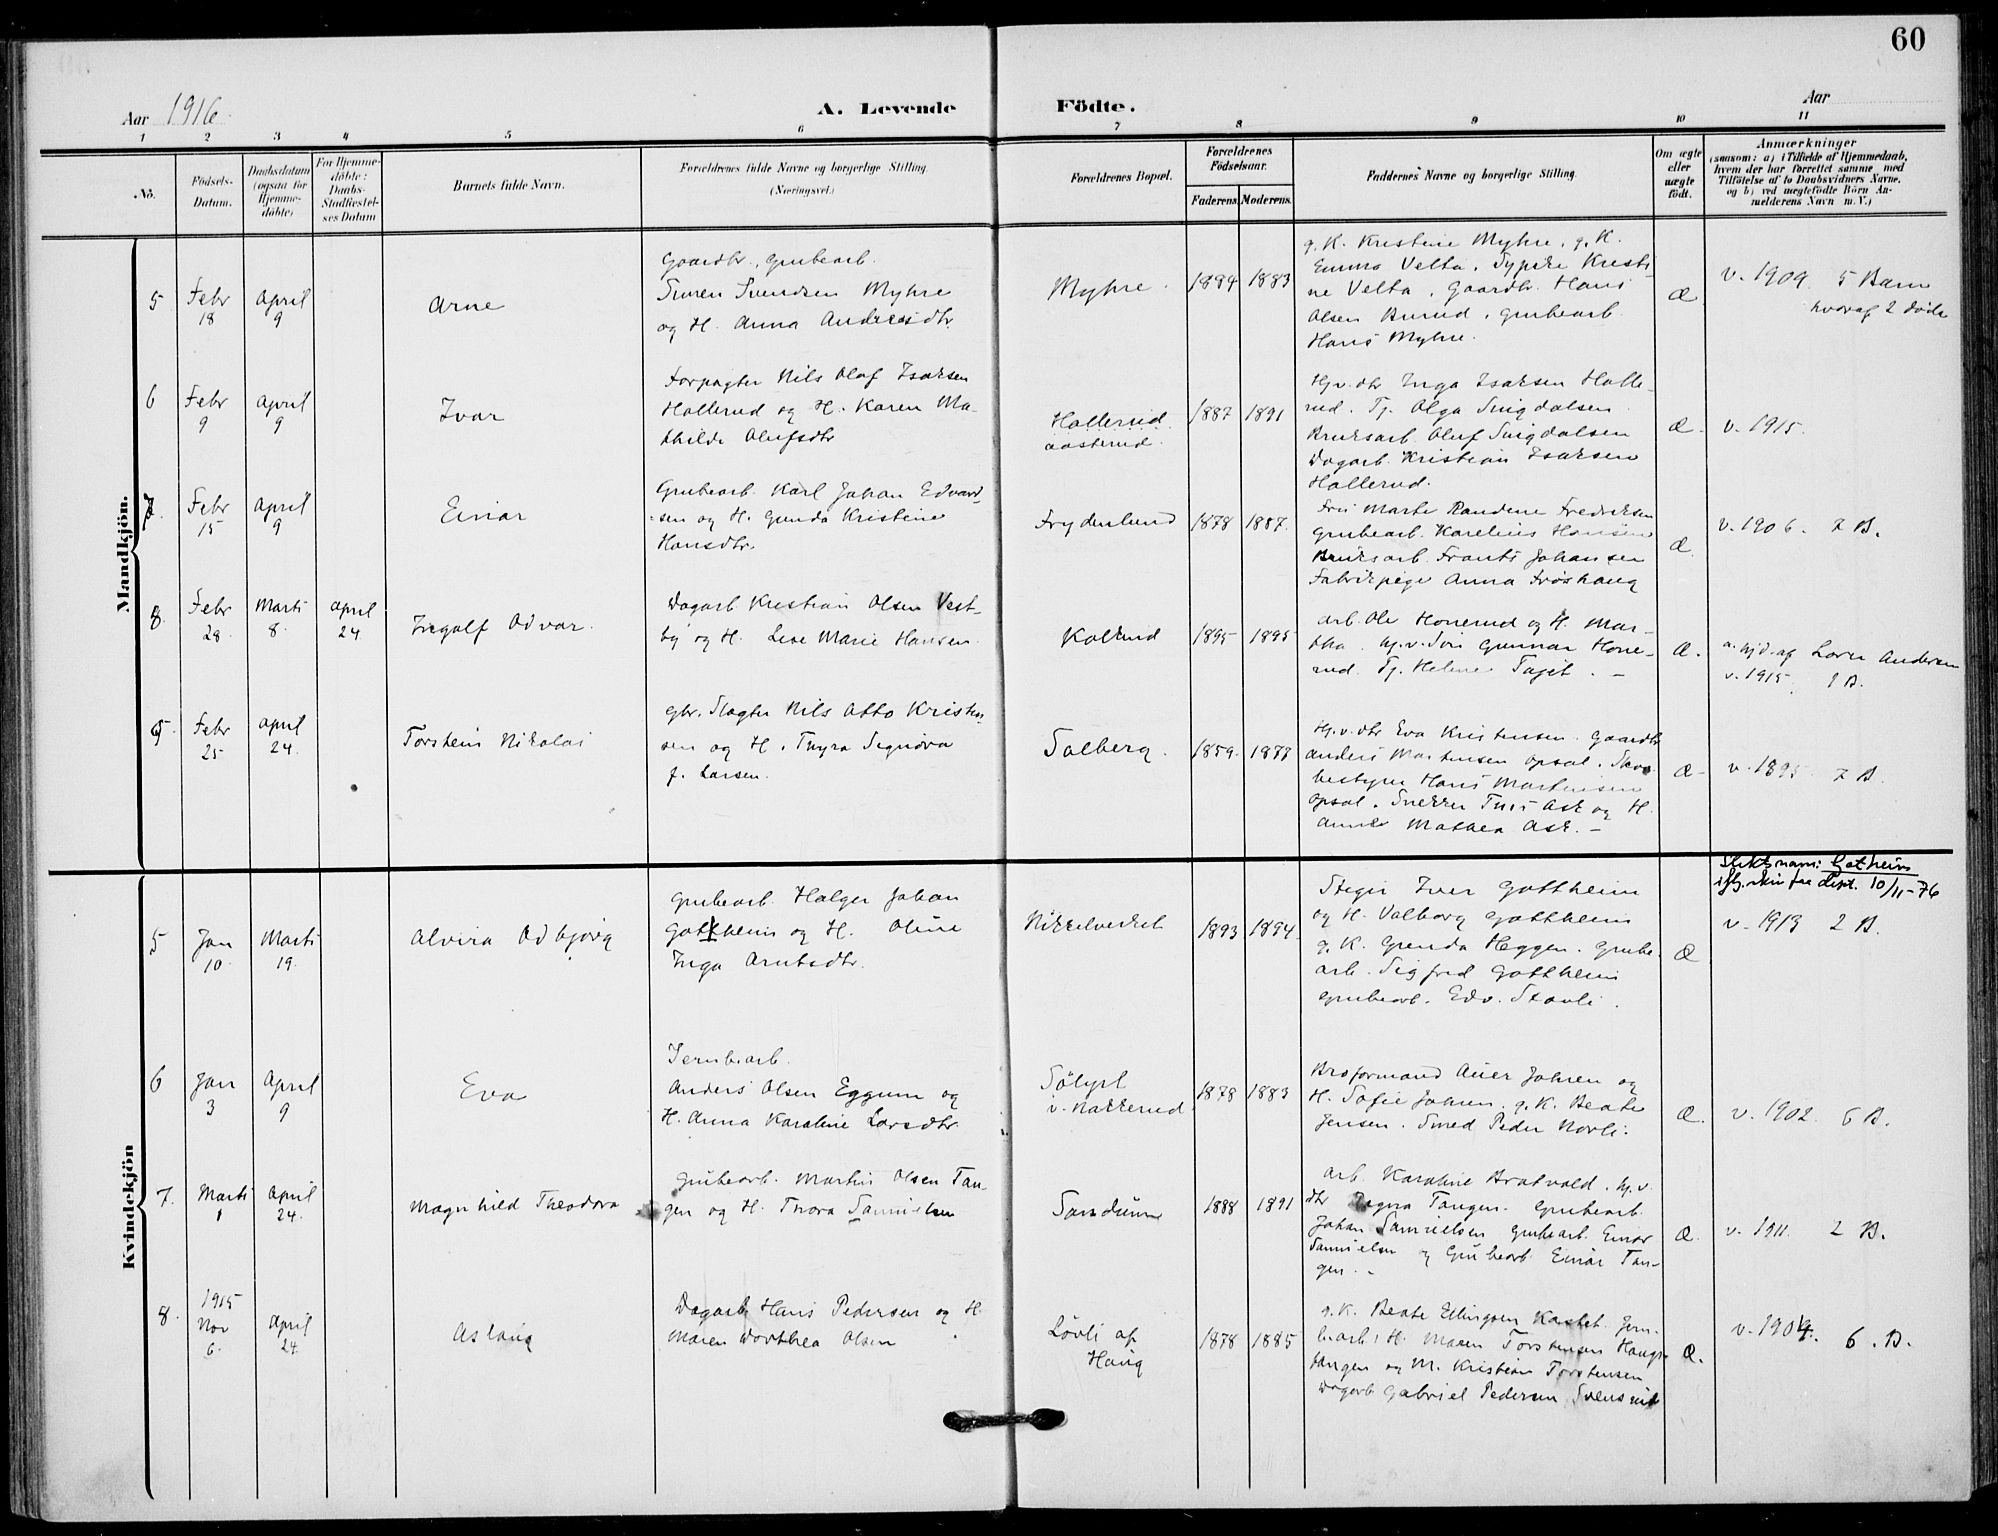 60
Aar 1916. A. Levende Födte. Aar
1 2 3 4 5 6 7 8 9 10 11
No.
Födsels-
Datum.
Daabsdatum
(ogsaa for
Hjemme-
döbte)
For Hjemme-
döbte:
Daabs-
Stadfæstel-
ses Datum
Barnets fulde Navn.
Forældrenes fulde Navne og borgerlige Stilling.
(Næringsvei.)
Forældrenes Bopæl.
Forældrenes
Födselsaar.
Faderens. Moderens.
Faddernes Navne og borgerlige Stilling.
Om ægte
eller
uægte
født.
Anmærkninger
(saasom: a) i Tilfælde af Hjemmedaab,
hvem der har forrettet samme med
Tilføielse af to Daabsvidners Navne,
og b) ved uægtefödte Börn An-
melderens Navn m. V.)
Mandkjön.
5
Febr
18
April
9
Arne
Gaardbr., Grubearb.
Svendsen Myhre
og H. Anna Andreasdtr.
Myhre.
1894 1883
g. K. Kristine Myhre, g. K.
Emma Velta, Kristi-
ne Velta, Gaardbr. Hans
Olsen Burud, Grubearb.
Hans Myhre.
Æ
v. 1909. 5 Barn
hvoraf 2 døde
6
Febr
9
April
9
Ivar
Forpagter Nils Olaf Isaksen
Hollerud og H. Karen Ma-
thilde Olufsdtr
Hollerud
Aasterud.
1887 1891
Hj.v. dtr Inga Isaksen Holle-
rud. Tj. Olga Smigdalsen
Bruksarb. Oluf Smigdalsen
Dagarb. Kristian Isaksen
Hollerud.
Æ.
v. 1915.
7.
Febr
15
April
9
Einar
Grubearb. Karl Johan Edvard-
sen og H. Gunda Kristine
Hansdtr.
Frydenlund
1878 1887.
Fru Marte Randine Fredriksen
Grubearb. Karelius Hansen
Bruksarb. Frants Johansen
Fabrikpige Anna Frøshaug
Æ.
v. 1906. 7 B.
8.
Febr
28.
Marts
8.
April
24
Ingolf Odvar.
Dagarb Kristian Olsen Vest-
by og H. Lise Marie Hansen
Kolerud
1895 1895
Arb. Ole Honerud og H. Mar-
tha. Hj.v. Søn Gunnar Hone-
rud. Tj. Helene. –
Æ.
a. hjd. af Lovn Andersen
v. 1915, 1 B.
9.
Febr
25
April
24.
Torstein Nikolai
Gbr. Slagter Nils Otto Kristen-
sen og H. Thyra Signora
f. Larsen.
Solberg.
1859.
Hj.v. dtr Eva Kristensen. Gaardbr
Anders Martinsen Opsal.
bestyrer Hans Martinsen
Opsal. Snekker Ask og H.
Mathea Ask. –
Æ
v. 1895 7 B.
Kvindekjön
Slektsnavn: Gotheim
iflg. skriv fra dept. 10/11-76
5
Jan
10.
Marts
19.
Alvira Odbjørg
Grubearb. Holger Johan
Gottheim og H. Oline
Inga Arntsdtr.
Nikkelverket
1893 1894.
Steger Iver Gottheim
og H. Valborg Gottheim
g. K. Gunda Heggen. Grube-
arb. Sigfred Gottheim
Grubearb. Edv. Stovli.
Æ
v. 1913 2 B.
6
Jan
3
April
9
Eva
Jernbearb.
Anders Olsen Eggum og
H. Anna Karoline Larsdtr.
Sølyst
v. Nakkerud
1878 1883
Broformand Auer Johren og
H. Sofie Johren. g. K. Beate
Jensen. Smed Peder Norli.
Æ.
v. 1902. 6 B.
7.
Marts
1
April
24.
Magnhild Theodora
Grubearb. Martin Olsen Tan-
gen og H. Thora Samuelsen
Sandum
1888 1891
Arb. Karoline Bratvold. Hj.v.
dtr Dagna Tangen. Grubearb.
Johan Samuelsen Grubearb. Einar
Samuelsen og Grubearb Einar Tan-
gen. –
Æ.
v. 1911. 2 B.
8.
1915
Nov
6.
April
24.
Aslaug
Dagarb. Hans Pedersen og H
Maren Dorthea Olsen
Løvli af
Haug
1878 1885
g. K. Beate Ellingsen Kastet. Jern-
bearb: H. Maren Torstensen Haugs-
tangen og M. Kristian Torstensen
Dagarb Gabriel Pedersen Svensrud
Æ.
v. 1904. 6. B.